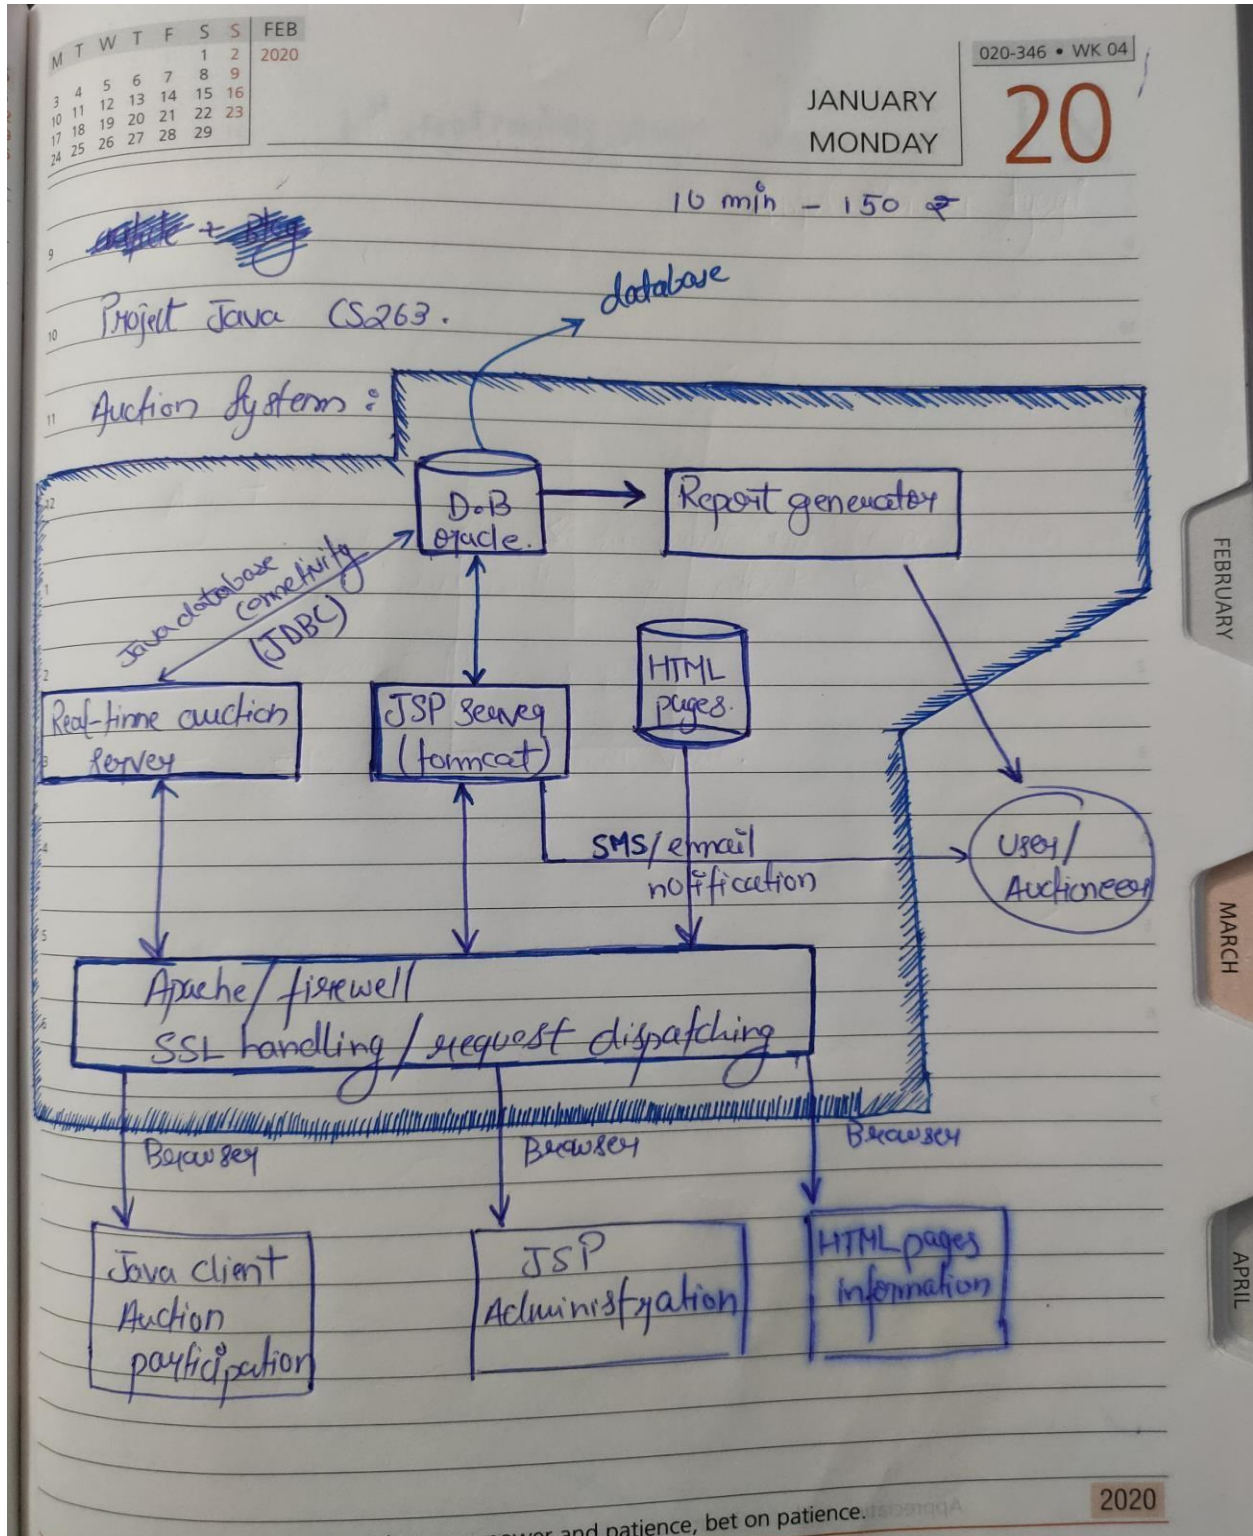 M T W T F S S FEB
1 2 2020
3 4 5 6 7 8 9
10 11 12 13 14 15 16
17 18 19 20 21 22 23
24 25 26 27 28 29
020-346 • WK 04
JANUARY
MONDAY
20
10 min - 150 ₹
9
Project Java CS263.
10
database
Auction System:
11
12
D.B
oracle.
Report generator
Java database
Connetivity
(JDBC)
1
2
HTML
pages.
Real-time auction
server
JSP Server
(tomcat)
3
4
SMS/email
notification
User/
Auctioneer
5
Apache/firewell
SSL handling/request dispatching
6
Browser
Browser
Browser
Java client
Auction
participation
JSP
Administration
HTML pages
information
FEBRUARY
MARCH
APRIL
and patience, bet on patience.
2020